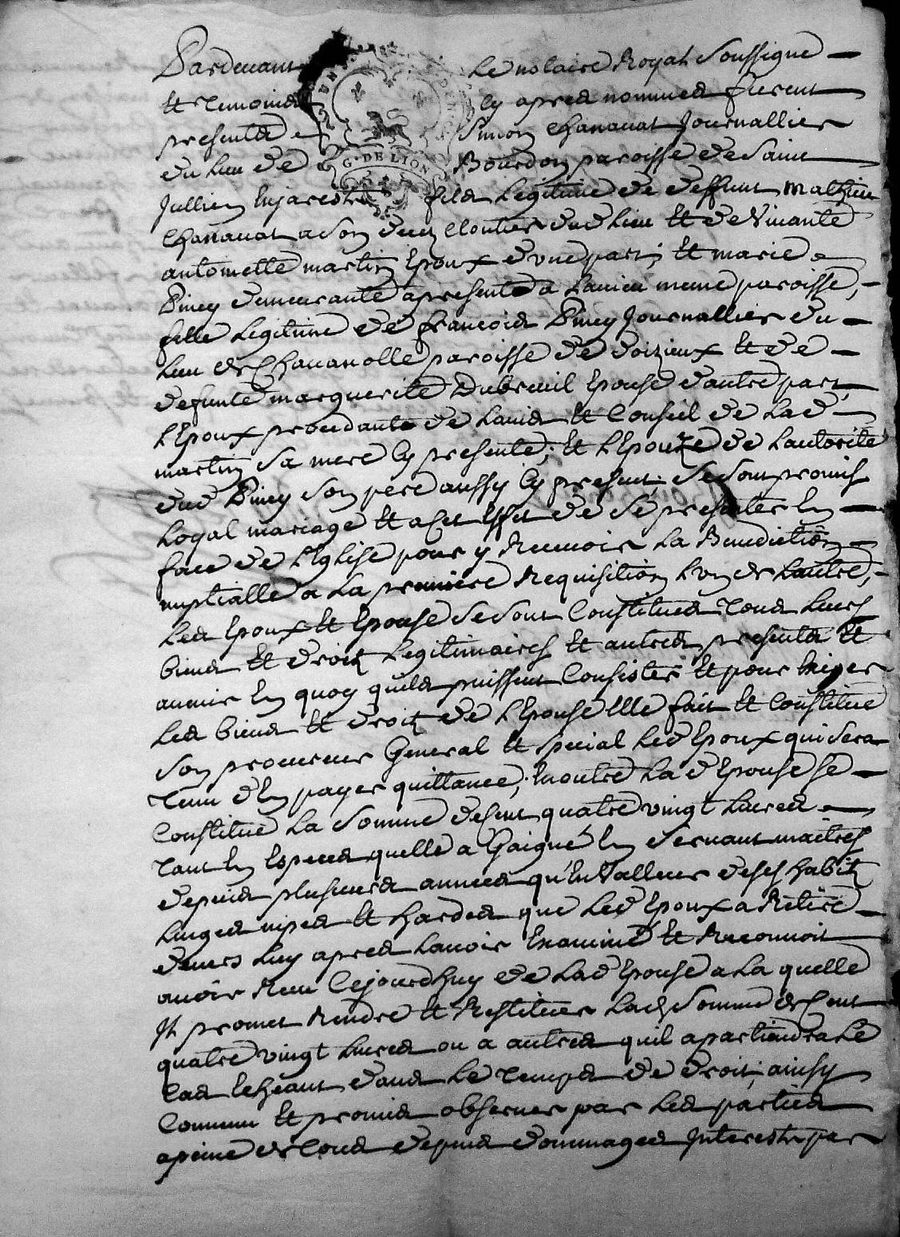 Pardevant Le notaire Royal Soussigne
Et Temoins Cy apres nommes furent
presents Simon Chanavat Journallier
du Lieu de Bourdon paroisse de Saint
G. DE LION
Jullien En jarest fils Legitime de deffunt Mathieu
Chanavat a Son vivant Cloutier dud Lieu Et de Vivante
antoinette martin Epoux d'une part; Et marie
Piney demeurante apresent a Lavieu meme paroisse,
fille Legitime de françois Piney Journallier du
Lieu de Chavanolle paroisse de doizieux Et de
defunte marguerite Dubreuil Epouse d'autre part
L'Epoux procedant de Lavis Et Conseil de La d
martin Sa mere Cy presente; Et L'Epouze de Lautorité
dud Piney Son pere aussy Cy present; Se Sont promis
Loyal mariage Et a Cet Effet de Se presenter En
face de L'Eglise pour y Recevoir La Benediction
nuptialle a La premiere Requisition L'un de Lautre,
Les Epoux Et Epouse Se Sont Constitués Tous Leurs
biens Et droits Legitimaires Et autres presents Et
avenir En quoy quils puissent Consister Et pour Exiger
Les biens Et droits de L'Epouse Elle fait Et Constitue
Son procureur General Et Special Led Epoux qui Sera
Tenu d'En payer quittance; En outre La d Epouse Se
Constitue La Somme de Cent quatre vingt Livres
Tant En Especes quelle a Gaigné En Servant maitres
depuis plusieurs années qu'En Valleur de Ses habits
Linges nipes Et hardes que Led Epoux a Retiré
devers Luy apres Lavoir Examiné Et Reconnoit
avoir Reçu Cejourdhuy de Lad Epouse a La quelle
Il promet Rendre Et Restituer Lad Somme de Cent
quatre vingt Livres ou a autres quil apartiendra Le
Cas Echeant dans Le Temps de droit; ainsy
Convenu Et promis observer par Les parties
apeine de Tous depens dommages Interests par